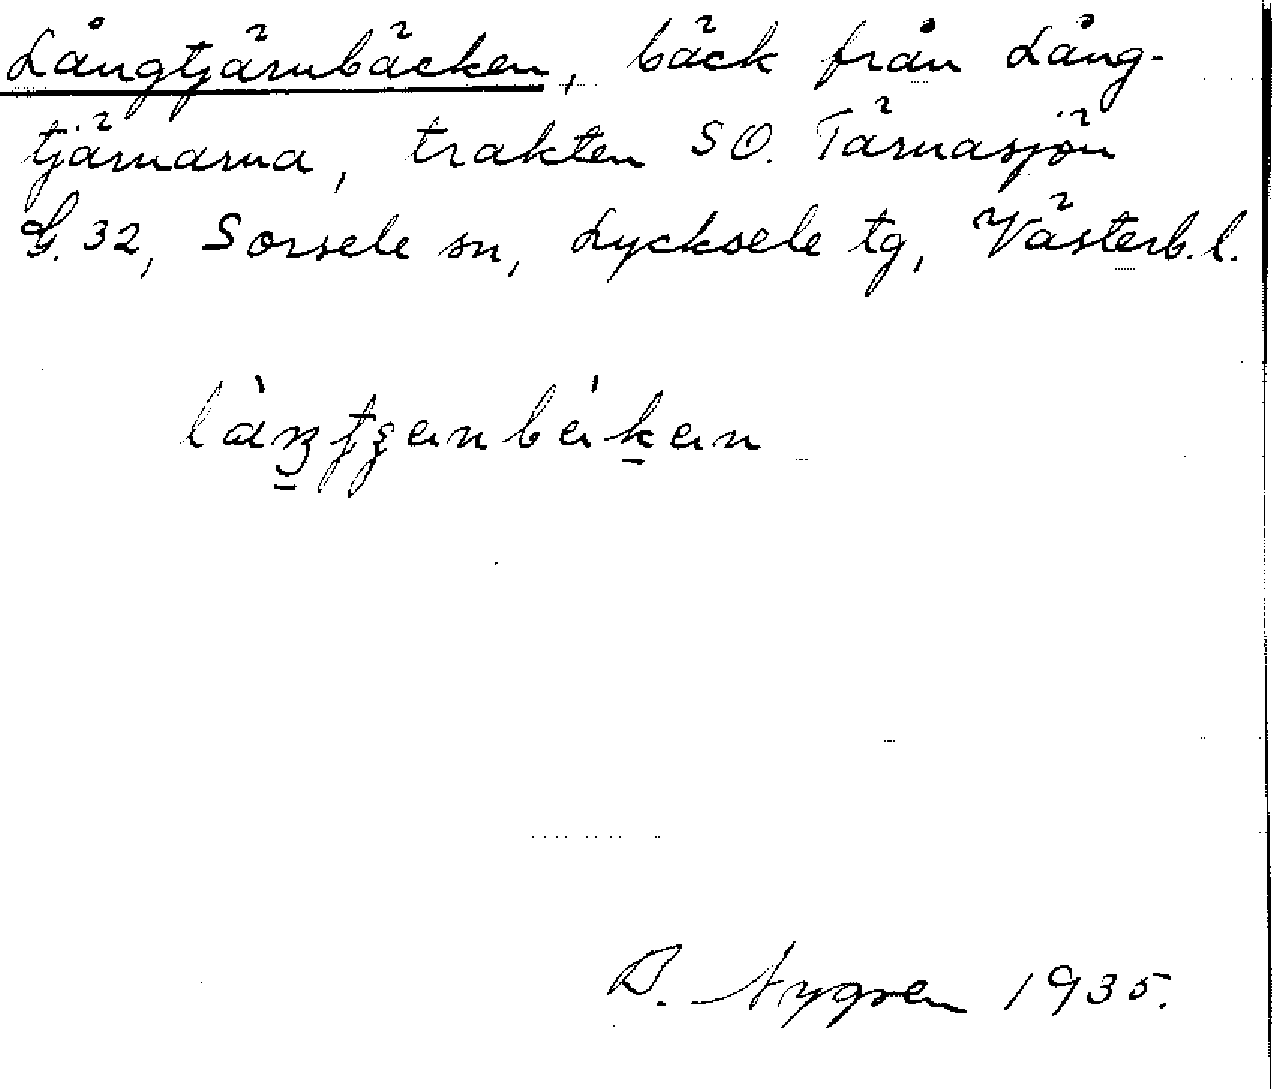 Långtjärnbäcken, bäck från Lång-
tjärnarna, trakten SO. Tärnasjön
G. 32, Sorsele sn, Lycksele tg, Västerb. l.
Nygren 1935.